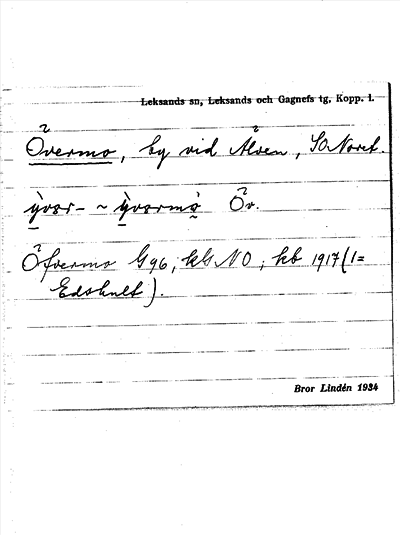 Leksands sn, Leksands och Gagnefs tg, Kopp. l.
Övermo, by vid Älven, SO Noret.
ỳvər- ~ ỳvərmo Öv.
Öfvermo G 96; kbNO; kb 1917 (1=
Edshult).
Bror Lindén 1934